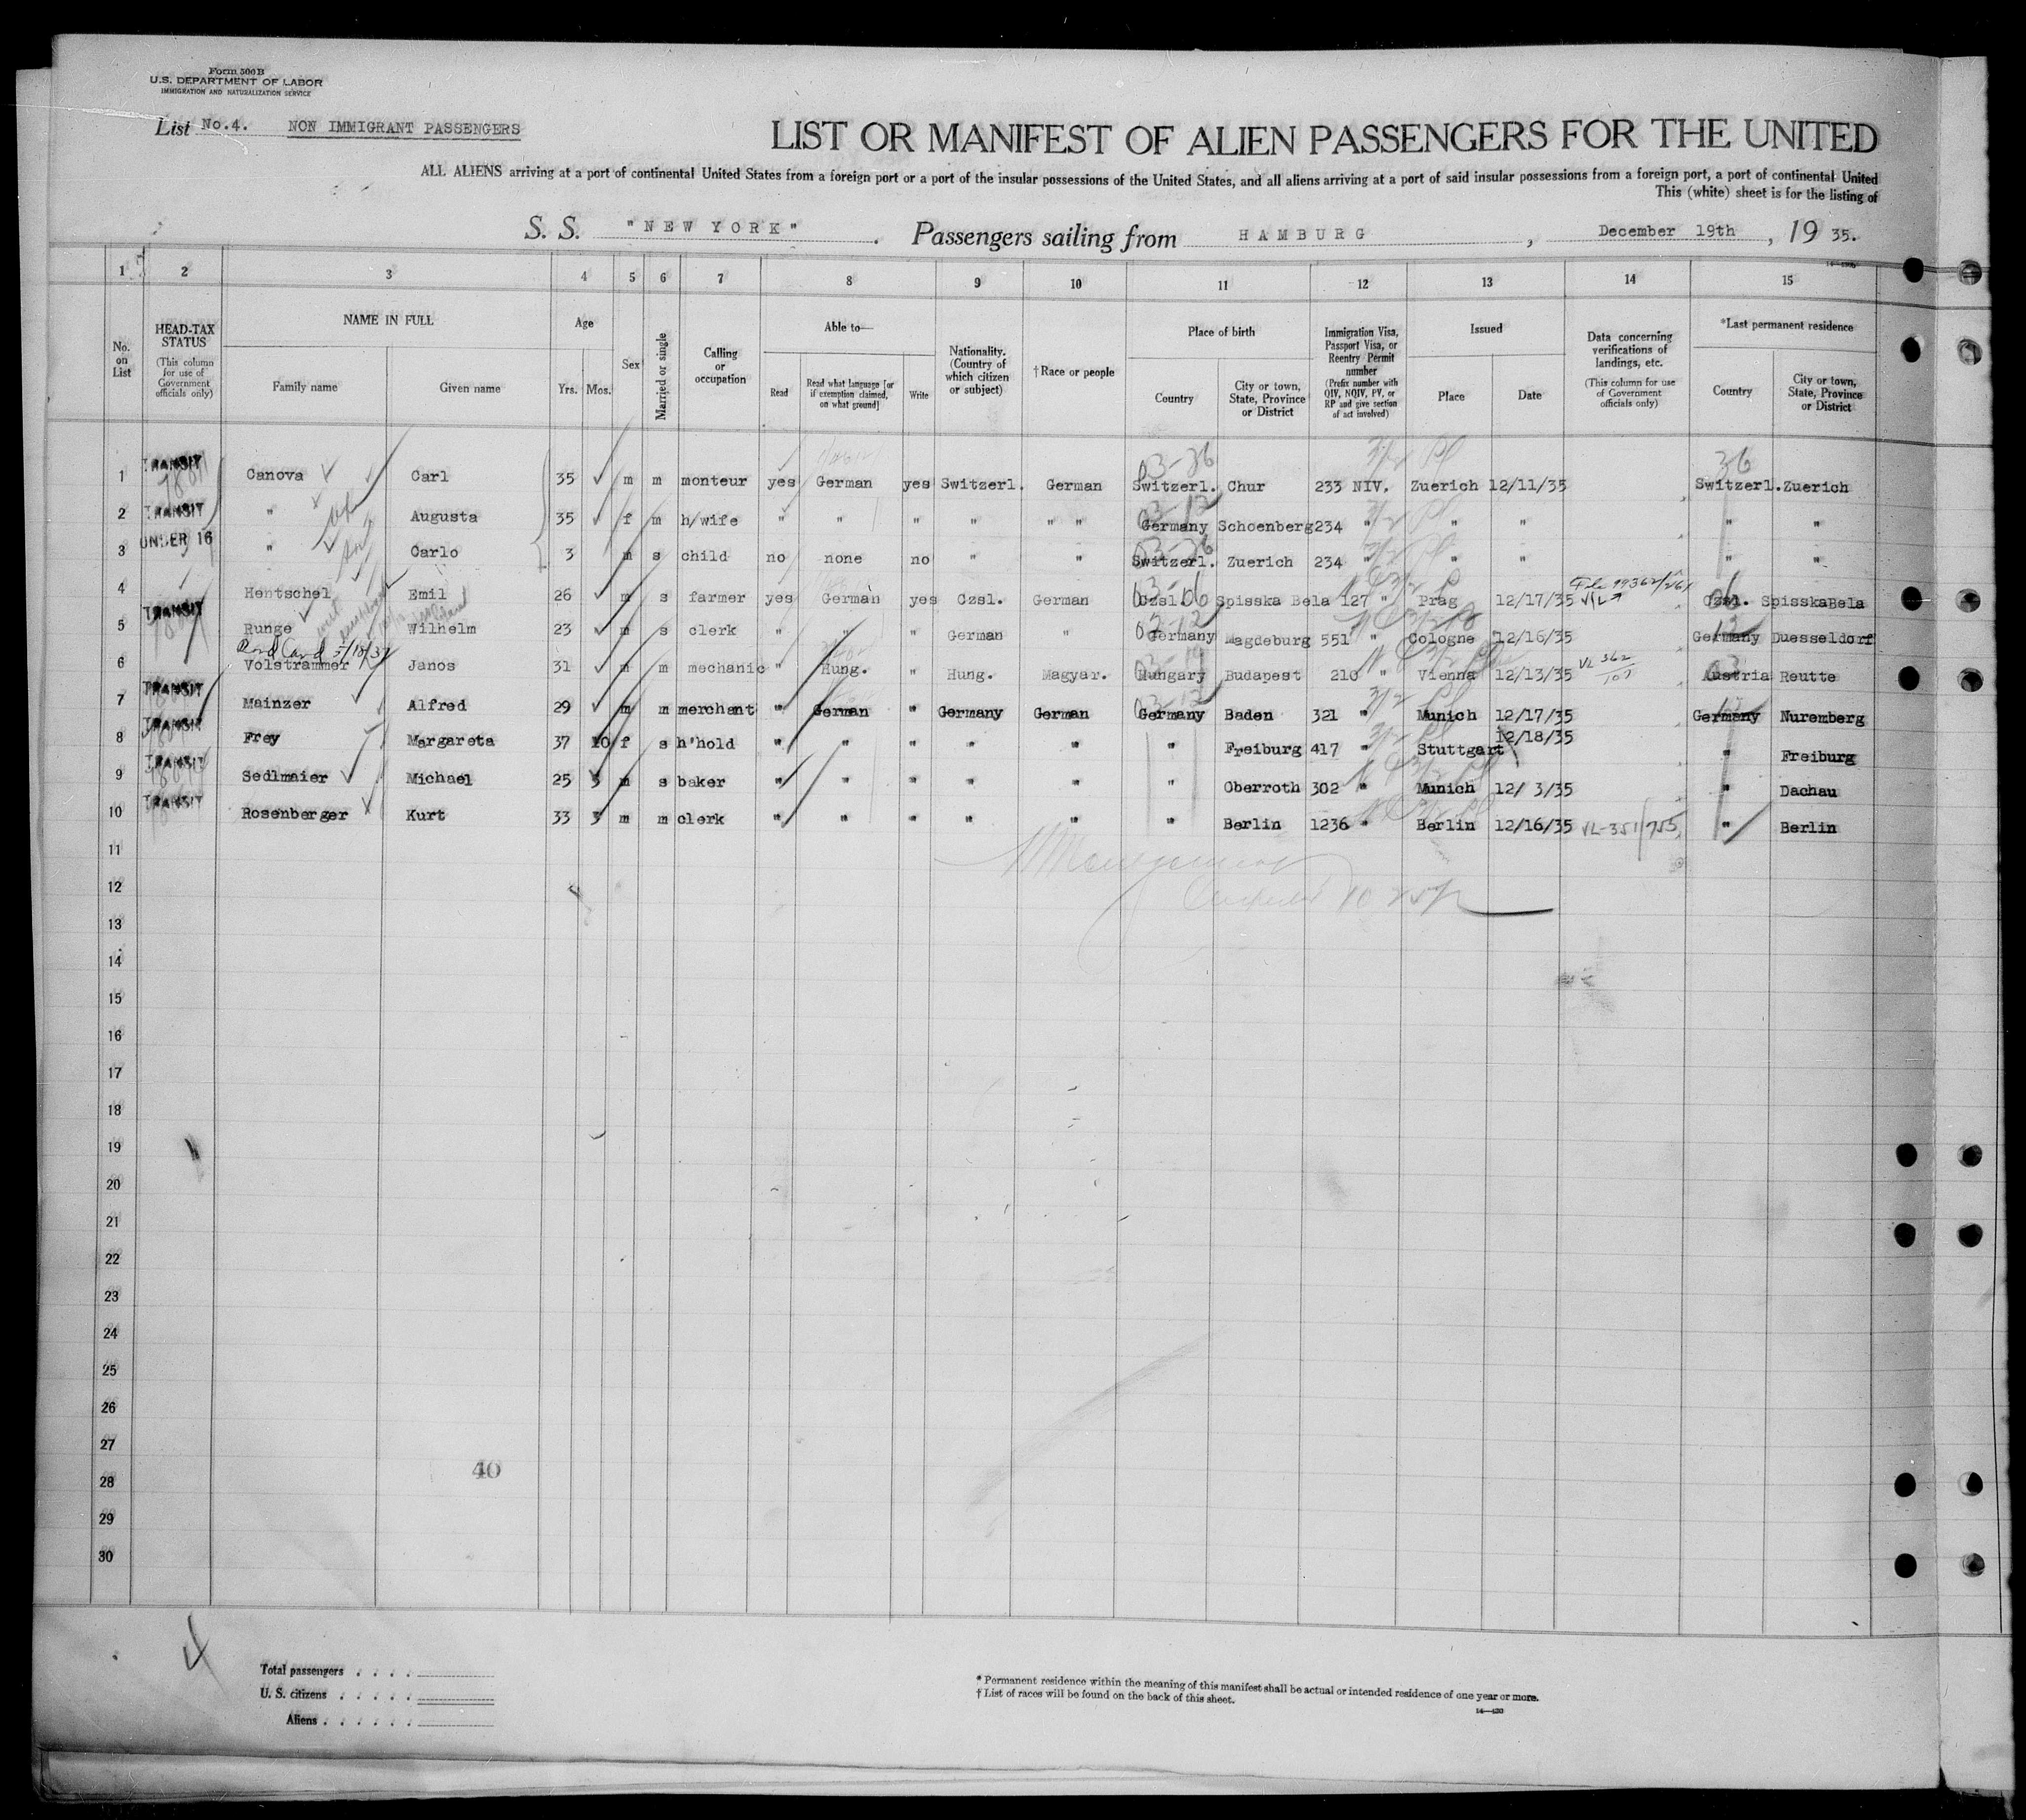 Form 500B
U.S. DEPARTMENT OF LABOR
IMMIGRATION AND NATURALIZATION SERVICE
List No.4. NON IMMIGRANT PASSENGERS
LIST OR MANIFEST OF ALIEN PASSENGERS FOR THE UNITED
ALL ALIENS arriving at a port of continental United States from a foreign port or a port of the insular possessions of the United States, and all aliens arriving at a port of said insular possessions from a foreign port, a port of continental United
This (white) sheet is for the listing of
S. S. "NEW YORK". Passengers sailing from HAMBURG, December 19th, 19 35.
1 2 3 4 5 6 7 8 9 10 11 12 13 14 15
No. on List
HEAD-TAX STATUS (This column for use of Government officials only)
NAME IN FULL
Family name
Given name
Age
Yrs. Mos.
Sex
Married or single
Calling or occupation
Able to—
Read
Read what language [or if exemption claimed, on what ground]
Write
Nationality. (Country of which citizen or subject)
†Race or people
Place of birth
Country
City or town, State, Province or District
Immigration Visa, Passport Visa, or Reentry Permit number (Prefix number with QIV, NQIV, PV, or RP and give section of act involved)
Issued
Place
Date
Data concerning verifications of landings, etc. (This column for use of Government officials only)
*Last permanent residence
Country
City or town, State, Province or District
1 TRANSIT Canova Carl 35 m m monteur yes German yes Switzerl. German 03-26 Switzerl. Chur 233 NIV. Zuerich 12/11/35 26 Switzerl. Zuerich
2 TRANSIT " Augusta 35 f m h/wife " " " " " " 03-12 Germany Schoenberg 234 " " " " "
3 UNDER 16 " Carlo 3 m s child no none no " " 03-26 Switzerl. Zuerich 234 " " " " "
4 Hentschel Emil 26 m s farmer yes German yes Czsl. German 03-06 Czsl. Spisska Bela 127 " Prag 12/17/35 06 Czsl. SpisskaBela
5 TRANSIT Runge Wilhelm 23 m s clerk " " " German " Germany Magdeburg 551 " Cologne 12/16/35 12 Germany Duesseldorf
6 Volstrammer Janos 31 m m mechanic " Hung. " Hung. Magyar. Hungary Budapest 210 " Vienna 12/13/35 VL 362 03 Austria Reutte
7 TRANSIT Mainzer Alfred 29 m m merchant " German " Germany German 03-12 Germany Baden 321 " Munich 12/17/35 12 Germany Nuremberg
8 TRANSIT Frey Margareta 37 10 f s h'hold " " " " " " Freiburg 417 " Stuttgart 12/18/35 " Freiburg
9 TRANSIT Sedlmaier Michael 25 3 m s baker " " " " " " Oberroth 302 " Munich 12/ 3/35 " Dachau
10 TRANSIT Rosenberger Kurt 33 3 m m clerk " " " " " " Berlin 1236 " Berlin 12/16/35 VL-351/755 " Berlin
11
12
13
14
15
16
17
18
19
20
21
22
23
24
25
26
27
28
29
30
40
Total passengers . . . .
U. S. citizens . . . . .
Aliens . . . . . .
* Permanent residence within the meaning of this manifest shall be actual or intended residence of one year or more.
† List of races will be found on the back of this sheet.